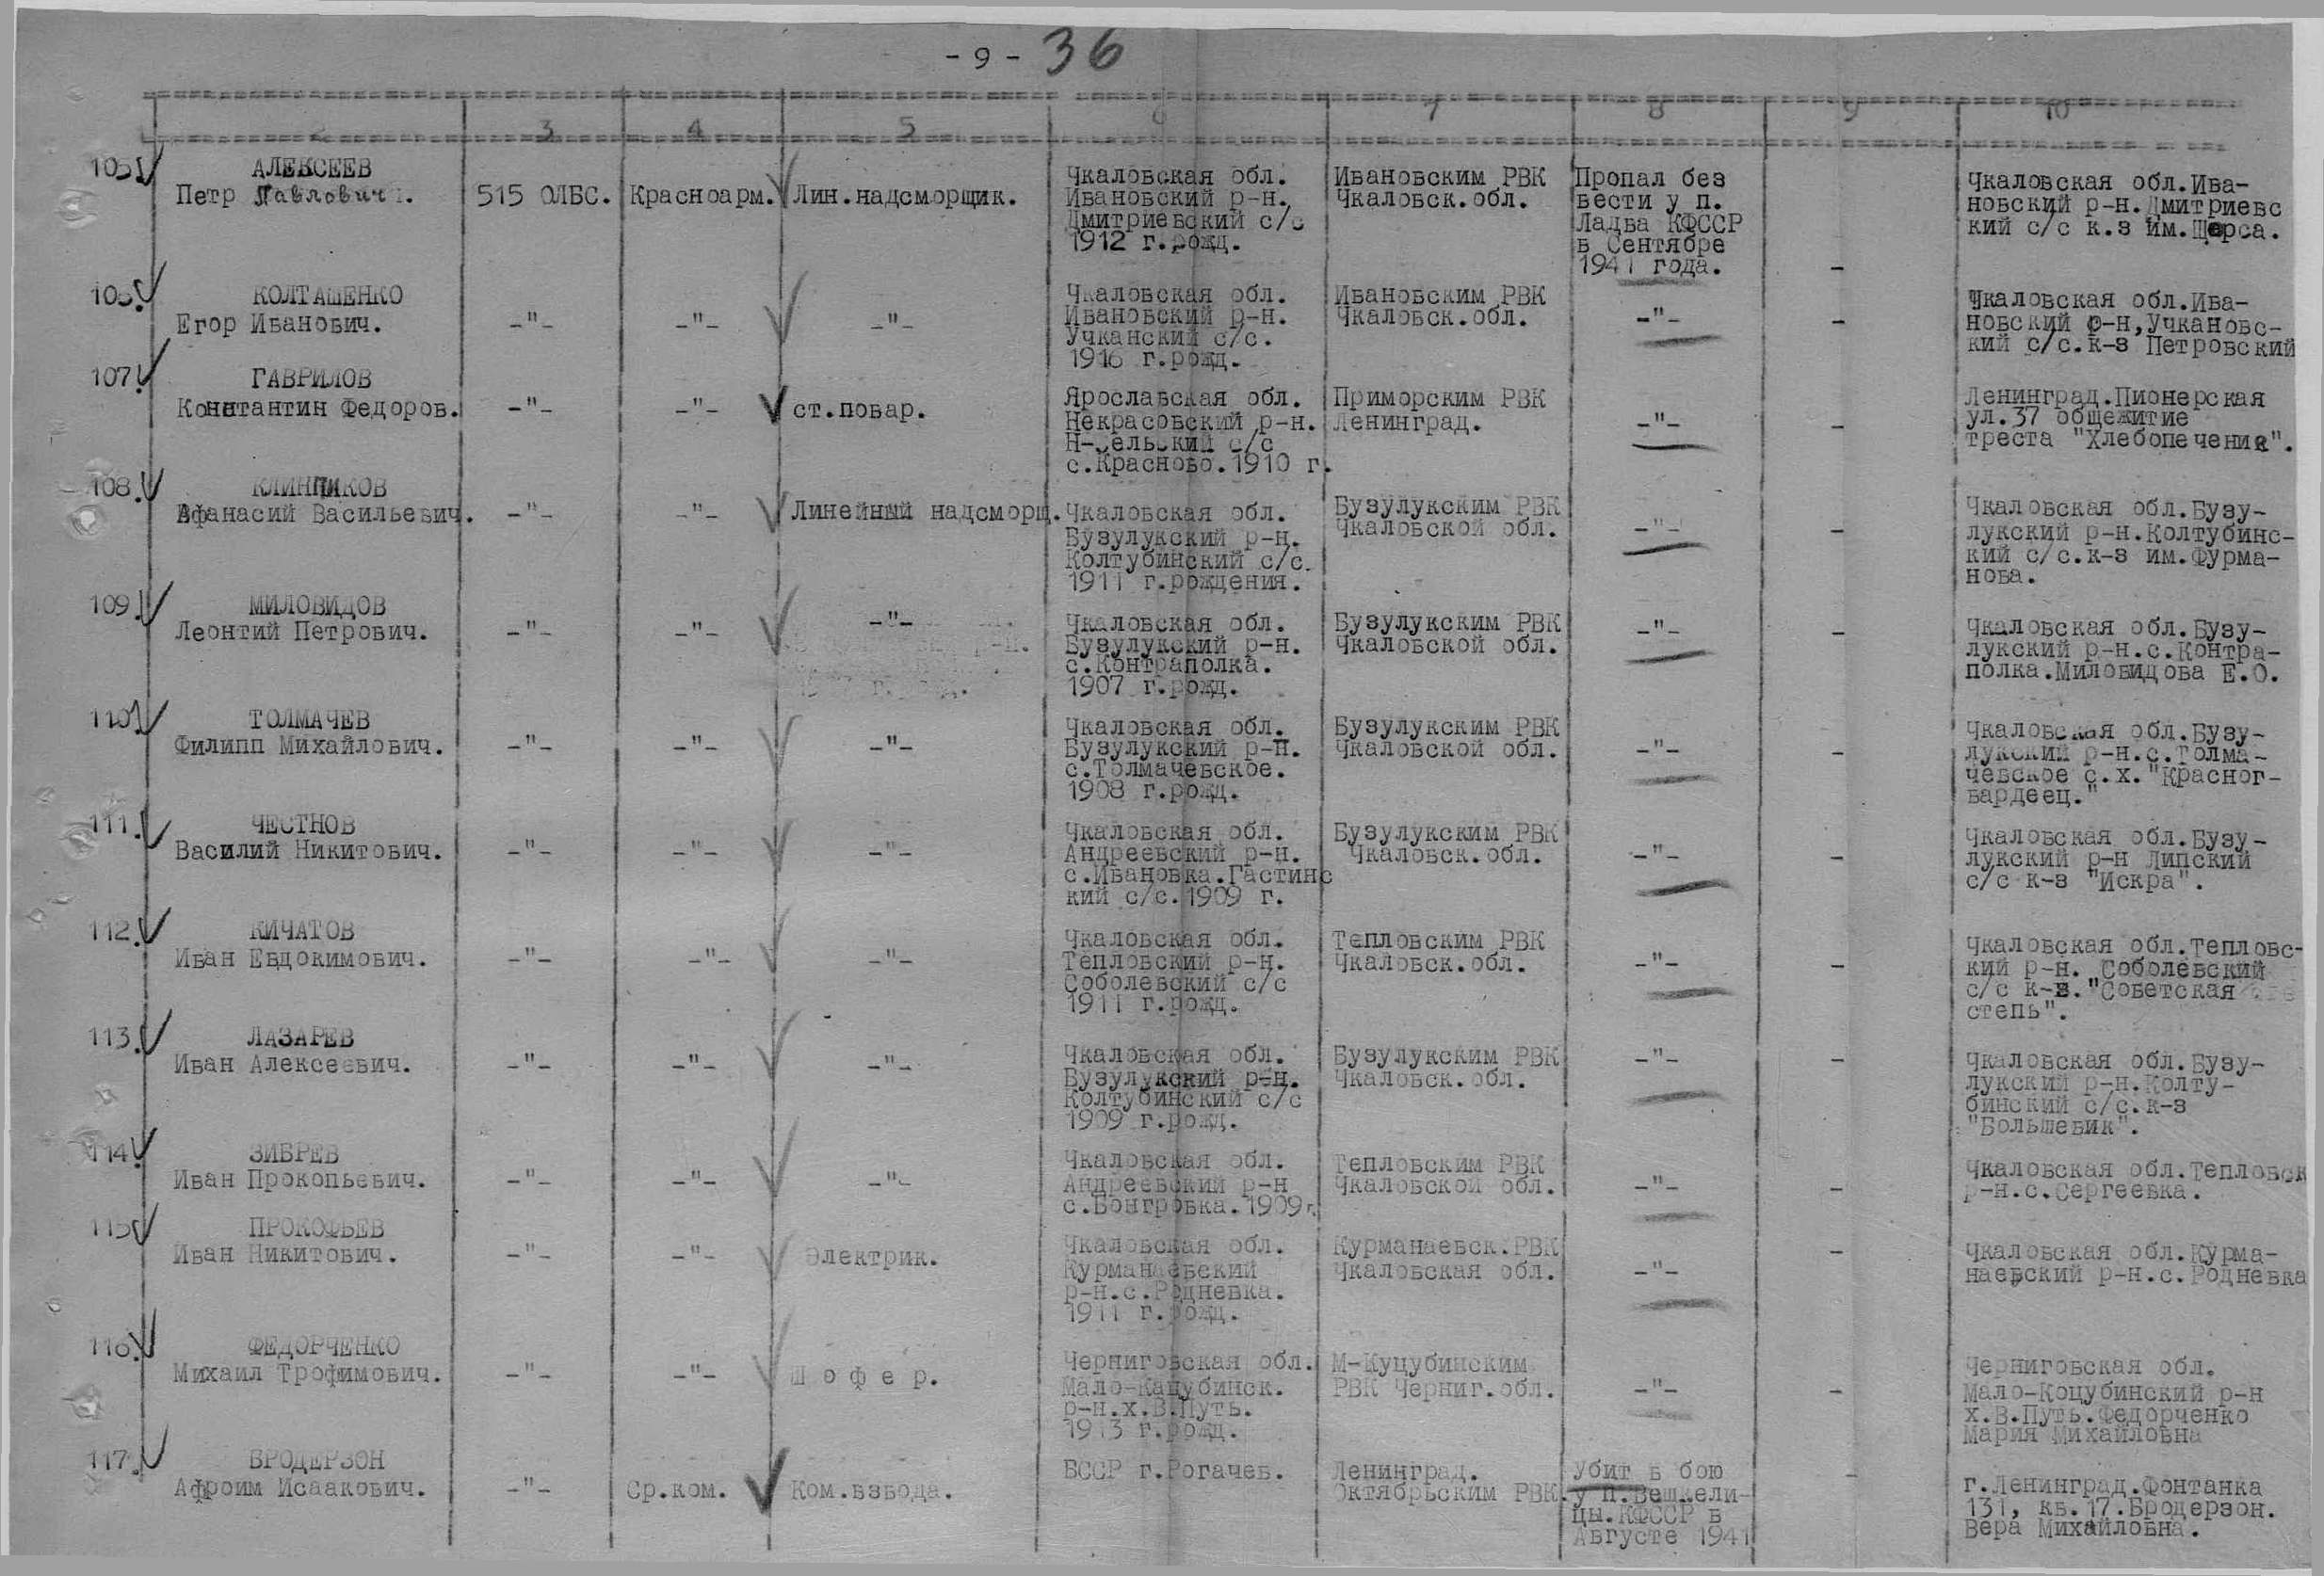 - 9 - 36
2 3 4 5 6 7 8 9 10
105. АЛЕКСЕЕВ
Петр Павлович. 515 ОЛБС. Красноарм. Лин.надсморщик.
Чкаловская обл.
Ивановский р-н.
Дмитриевский с/с
1912 г.рожд.
Ивановским РВК
Чкаловск.обл.
Пропал без
вести у п.
Ладва КФССР
в Сентябре
1941 года.
-
Чкаловская обл.Ива-
новский р-н.Дмитриевс
кий с/с к.з им.Щорса.
106. КОЛТАШЕНКО
Егор Иванович. -"- -"- -"-
Чкаловская обл.
Ивановский р-н.
Учканский с/с.
1916 г.рожд.
Ивановским РВК
Чкаловск.обл.
-"- -
Чкаловская обл.Ива-
новский р-н,Учкановс-
кий с/с.к-з Петровский
107. ГАВРИЛОВ
Констатин Федоров. -"- -"- ст.повар.
Ярославская обл.
Некрасовский р-н.
с/с
с.Красново.1910 г.
Приморским РВК
Ленинград.
-"- -
Ленинград.Пионерская
ул.37 общежитие
треста "Хлебопечения".
108. КЛИНЦИКОВ
Афанасий Васильевич. -"- -"- Линейный надсморщ.
Чкаловская обл.
Бузулукский р-н.
Колтубинский с/с.
1911 г.рождения.
Бузулукским РВК
Чкаловской обл.
-"- -
Чкаловская обл.Бузу-
лукский р-н.Колтубинс-
кий с/с.к-з им.Фурма-
нова.
109. МИЛОВИДОВ
Леонтий Петрович. -"- -"- -"-
Чкаловская обл.
Бузулукский р-н.
с.Контраполка.
1907 г.рожд.
Бузулукским РВК
Чкаловской обл.
-"- -
Чкаловская обл.Бузу-
лукский р-н.с.Контра-
полка.Миловидова Е.О.
110. ТОЛМАЧЕВ
Филипп Михайлович. -"- -"- -"-
Чкаловская обл.
Бузулукский р-н.
с.Толмачевское.
1908 г.рожд.
Бузулукским РВК
Чкаловской обл.
-"- -
Чкаловская обл.Бузу-
лукский р-н.с.Толма-
чевское с.х."Красног-
вардеец."
111. ЧЕСТНОВ
Василий Никитович. -"- -"- -"-
Чкаловская обл.
Андреевский р-н.
с.Ивановка.Гастинс
кий с/с.1909 г.
Бузулукским РВК
Чкаловск.обл.
-"- -
Чкаловская обл.Бузу-
лукский р-н Липский
с/с к-з "Искра".
112. КИЧАТОВ
Иван Евдокимович. -"- -"- -"-
Чкаловская обл.
Тепловский р-н.
Соболевский с/с
1911 г.рожд.
Тепловским РВК
Чкаловск.обл.
-"- -
Чкаловская обл.Тепловс-
кий р-н. Соболевский
с/с к-з."Советская
степь".
113. ЛАЗАРЕВ
Иван Алексеевич. -"- -"- -"-
Чкаловская обл.
Бузулукский р-н.
Колтубинский с/с
1909 г.рожд.
Бузулукским РВК
Чкаловск.обл.
-"- -
Чкаловская обл.Бузу-
лукский р-н.Колту-
бинский с/с.к-з
"Большевик".
114. ЗИБРЕВ
Иван Прокопьевич. -"- -"- -"-
Чкаловская обл.
Андреевский р-н
с.Бонгровка.1909г.
Тепловским РВК
Чкаловской обл.
-"- -
Чкаловская обл.Тепловск
р-н.с.Сергеевка.
115. ПРОКОФЬЕВ
Иван Никитович. -"- -"- Электрик.
Чкаловская обл.
Курманаевский
р-н.с.Родневка.
1911 г.рожд.
Курманаевск.РВК
Чкаловская обл.
-"- -
Чкаловская обл.Курма-
наевский р-н.с.Родневка
116. ФЕДОРЧЕНКО
Михаил Трофимович. -"- -"- Ш о ф е р.
Черниговская обл.
Мало-Кацубинск.
р-н.х.В.Путь.
1913 г.рожд.
М-Куцубинским
РВК Черниг.обл.
-"- -
Черниговская обл.
Мало-Коцубинский р-н
х.В.Путь.Федорченко
Мария Михайловна
117. БРОДЕРЗОН
Афроим Исаакович. -"- Ср.ком. Ком.взвода.
БССР г.Рогачев.
Ленинград.
Октябрьским РВК.
Убит в бою
у п.Вешкели-
цы.КФССР в
Августе 1941
-
г.Ленинград.Фонтанка
131, кв.17.Бродерзон.
Вера Михайловна.